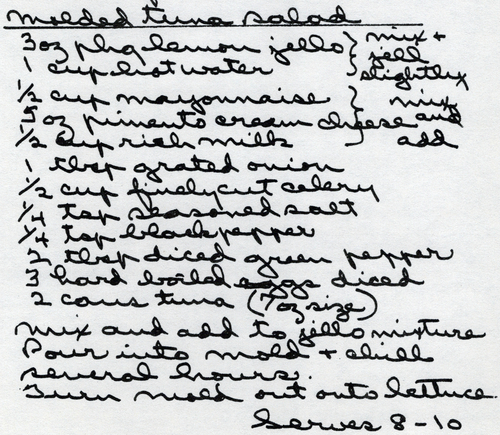 Molded tuna salad
3oz pkg lemon jello } mix +
1 cup hot water } jell slightly
1/2 cup mayonnaise } mix
5 oz pimento cream cheese and
1/2 cup rich milk } add
1 tbsp grated onion
1/2 cup finely cut celery
1/4 tsp seasoned salt
1/4 tsp black pepper
2 tbsp diced green pepper
3 hard boiled eggs diced
2 cans tuna (7oz size)
Mix and add to jello mixture
Pour into mold + chill
several hours.
Turn mold out onto lettuce.
Serves 8-10